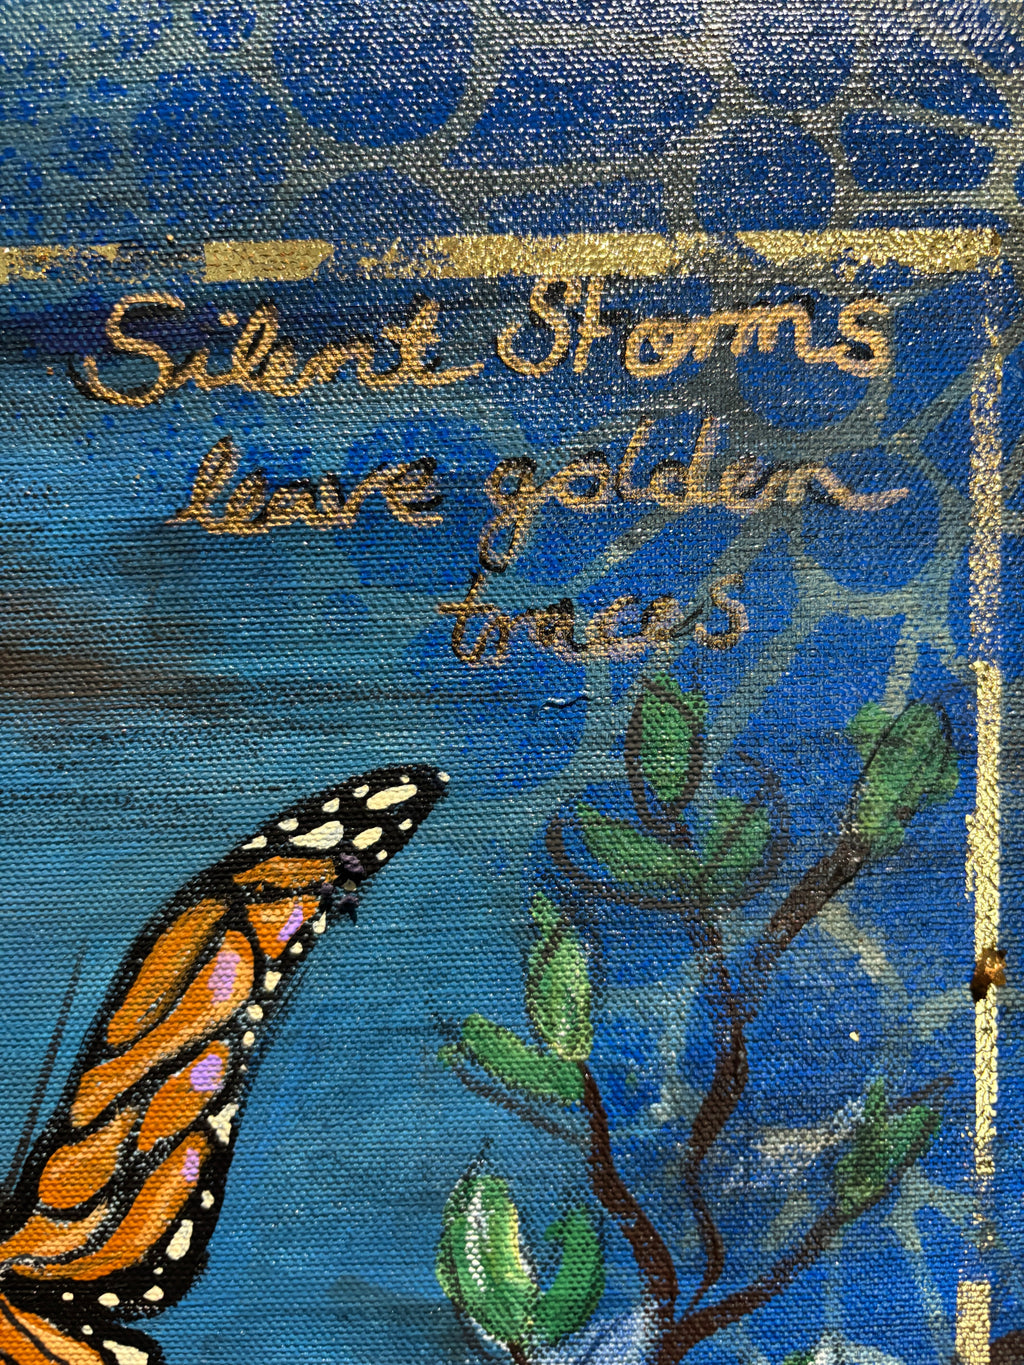 Silent Storms
leave golden
traces